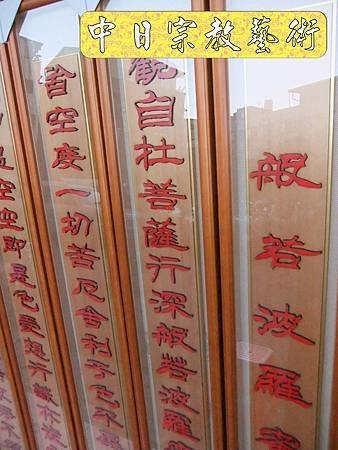 中日宗教藝術
般若波羅
觀自在菩薩行深般若波羅
皆空度一切苦厄舍利子色不異
是空空即是色受想行識亦復